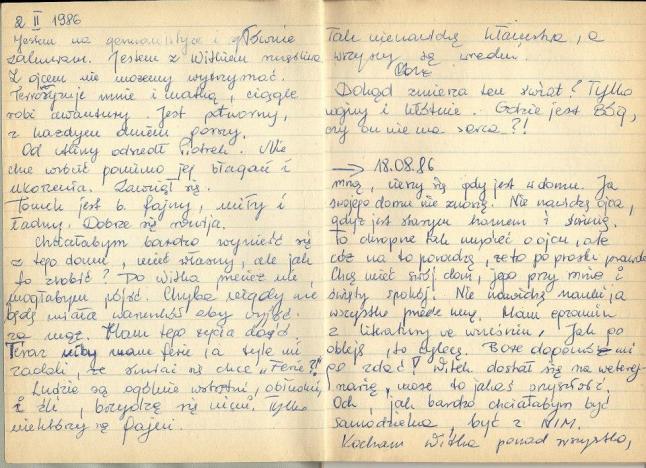 2 II 1986
Jestem na germanistyce i głównie
zakuwam. Jestem z Witkiem
Z ojcem nie możemy wytrzymać.
Terroryzuje mnie i matkę, ciągle
robi awantury. Jest potworny,
z każdym dniem gorszy.
Od Aliny odszedł Piotrek. Nie
chce wrócić pomimo jej błagań i
ukorzenia. Zawziął się.
Tomek jest b. fajny, miły i
ładny. Dobrze się rozwija.
Chciałabym bardzo wynieść się
z tego domu, mieć własny, ale jak
to zrobić? Do Witka przecież nie
mogłabym pójść. Chyba nigdy nie
będę miała warunków aby wyjść
za mąż. Mam tego życia dość
Teraz niby mam ferie ja tyle mi
zadali, że śmiać się chce "Ferie"!
Ludzie są ogólnie wstrętni, obłudni,
i źli, brzydzę się nimi. Tylko
niektórzy są fajni.
Tak nienawidzę kłamstwa, a
wszyscy są wredni.
Dokąd zmierza ten świat? Tylko
wojny i kłótnie. Gdzie jest Bóg,
czy on nie ma serca?!
→ 18.08.86
mną, cieszy się gdy jest w domu. Ja
swojego domu nie znoszę. Nienawidzę ojca,
gdyż jest starym chamem i świnią.
To okropne tak myśleć o ojcu, ale
cóż na to poradzę, że to po prostu prawda
Chcę mieć swój dom, jego przy mnie i
święty spokój. Nienawidzę nauki ja
wszystko przede mną. Mam egzamin
z literatury we wrześniu. Jak go
obleję, to wylecę. Boże dopomóż mi
go zdać! Witek dostał się na weteryn-
narię, może to jakaś przyszłość.
Och, jak bardzo chciałabym być
samodzielna, być z NIM.
Kocham Witka ponad wszystko,